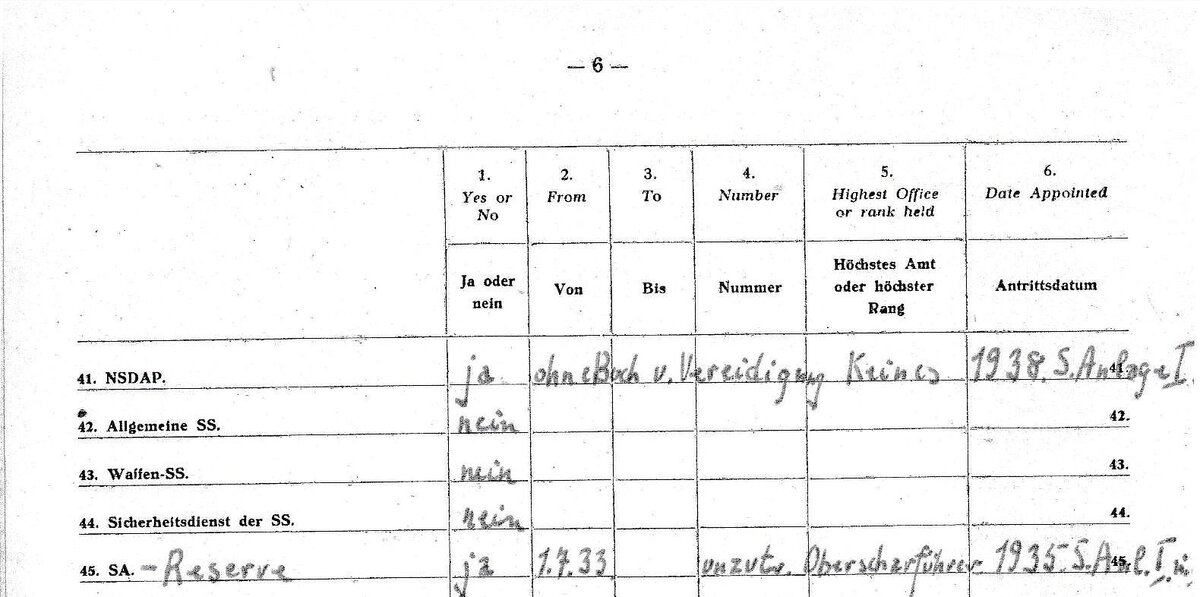 — 6 —
1. 2. 3. 4. 5. 6.
Yes or No From To Number Highest Office or rank held Date Appointed
Ja oder nein Von Bis Nummer Höchstes Amt oder höchster Rang Antrittsdatum
41. NSDAP. ja ohne Buch v. Vereidigung Keines 1938. S. Anlage I. 41.
42. Allgemeine SS. nein 42.
43. Waffen-SS. nein 43.
44. Sicherheitsdienst der SS. nein 44.
45. SA. - Reserve ja 1.7.33 unzutr. Oberscharführer 1935 S. Anl. I 45.